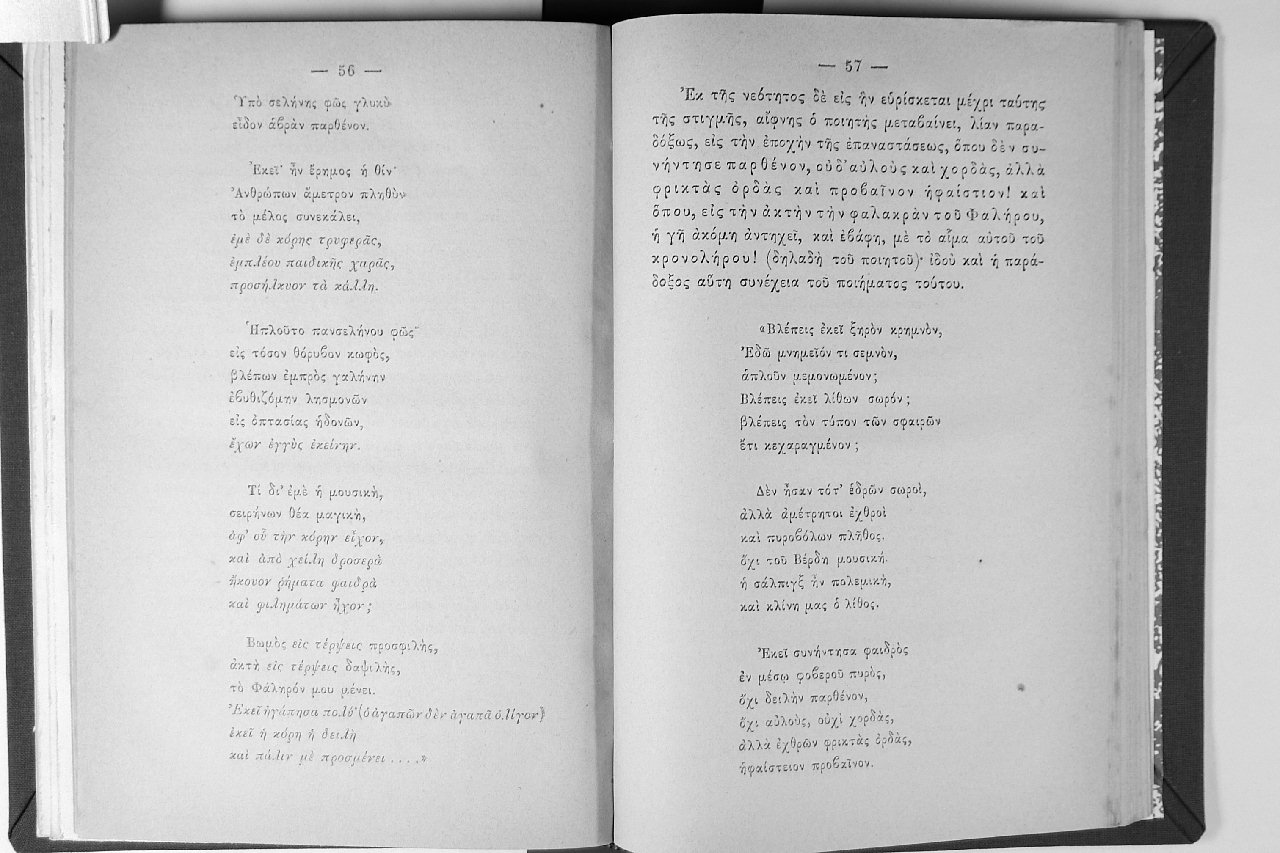 — 56 —
Ὑπὸ σελήνης φῶς γλυκὺ
εἶδον ἁβρὰν παρθένον.
Ἐκεῖ ἦν ἔρημος ἡ θίν·
Ἀνθρώπων ἄμετρον πληθὺν
τὸ μέλος συνεκάλει,
ἐμὲ δὲ κόρης τρυφερᾶς,
ἐμπλέου παιδικῆς χαρᾶς,
προσήλκυον τὰ κάλλη.
Ἡπλοῦτο πανσελήνου φῶς·
εἰς τόσον θόρυβον κωφὸς,
βλέπων ἐμπρὸς γαλήνην
ἐβυθιζόμην λησμονῶν
εἰς ὀπτασίας ἡδονῶν,
ἔχων ἐγγὺς ἐκείνην.
Τί δι' ἐμὲ ἡ μουσικὴ,
σειρήνων θέα μαγικὴ,
ἀφ' οὗ τὴν κόρην εἶχον,
καὶ ἀπὸ χείλη δροσερὰ
ἤκουον ῥήματα φαιδρὰ
καὶ φιλημάτων ἦχον;
Βωμὸς εἰς τέρψεις προσφιλὴς,
ἀκτὴ εἰς τέρψεις δαψιλὴς,
τὸ Φάληρόν μου μένει.
Ἐκεῖ ἠγάπησα πολὺ (ὁ ἀγαπῶν δὲν ἀγαπᾷ ὀλίγον)
ἐκεῖ ἡ κόρη ἡ δειλὴ
καὶ πάλιν μὲ προσμένει ....»
— 57 —
Ἐκ τῆς νεότητος δὲ εἰς ἣν εὑρίσκεται μέχρι ταύτης
τῆς στιγμῆς, αἴφνης ὁ ποιητὴς μεταβαίνει, λίαν παρα-
δόξως, εἰς τὴν ἐποχὴν τῆς ἐπαναστάσεως, ὅπου δὲν συ-
νήντησε παρθένον, οὐδ' αὐλοὺς καὶ χορδὰς, ἀλλὰ
φρικτὰς ὀρδὰς καὶ προβαῖνον ἡφαίστιον! καὶ
ὅπου, εἰς τὴν ἀκτὴν τὴν φαλακρὰν τοῦ Φαλήρου,
ἡ γῆ ἀκόμη ἀντηχεῖ, καὶ ἐβάφη, μὲ τὸ αἷμα αὐτοῦ τοῦ
κρονολήρου! (δηλαδὴ τοῦ ποιητοῦ)· ἰδοὺ καὶ ἡ παρά-
δοξος αὕτη συνέχεια τοῦ ποιήματος τούτου.
«Βλέπεις ἐκεῖ ξηρὸν κρημνὸν,
Ἐδῶ μνημεῖόν τι σεμνὸν,
ἁπλοῦν μεμονωμένον;
Βλέπεις ἐκεῖ λίθων σωρόν;
βλέπεις τὸν τύπον τῶν σφαιρῶν
ἔτι κεχαραγμένον;
Δὲν ἦσαν τότ' ἑδρῶν σωροὶ,
ἀλλὰ ἀμέτρητοι ἐχθροὶ
καὶ πυροβόλων πλῆθος.
ὄχι τοῦ Βέρδη μουσική.
ἡ σάλπιγξ ἦν πολεμικὴ,
καὶ κλίνη μας ὁ λίθος.
Ἐκεῖ συνήντησα φαιδρὸς
ἐν μέσῳ φοβεροῦ πυρὸς,
ὄχι δειλὴν παρθένον,
ὄχι αὐλοὺς, οὐχὶ χορδὰς,
ἀλλὰ ἐχθρῶν φρικτὰς ὀρδὰς,
ἡφαίστειον προβαῖνον.